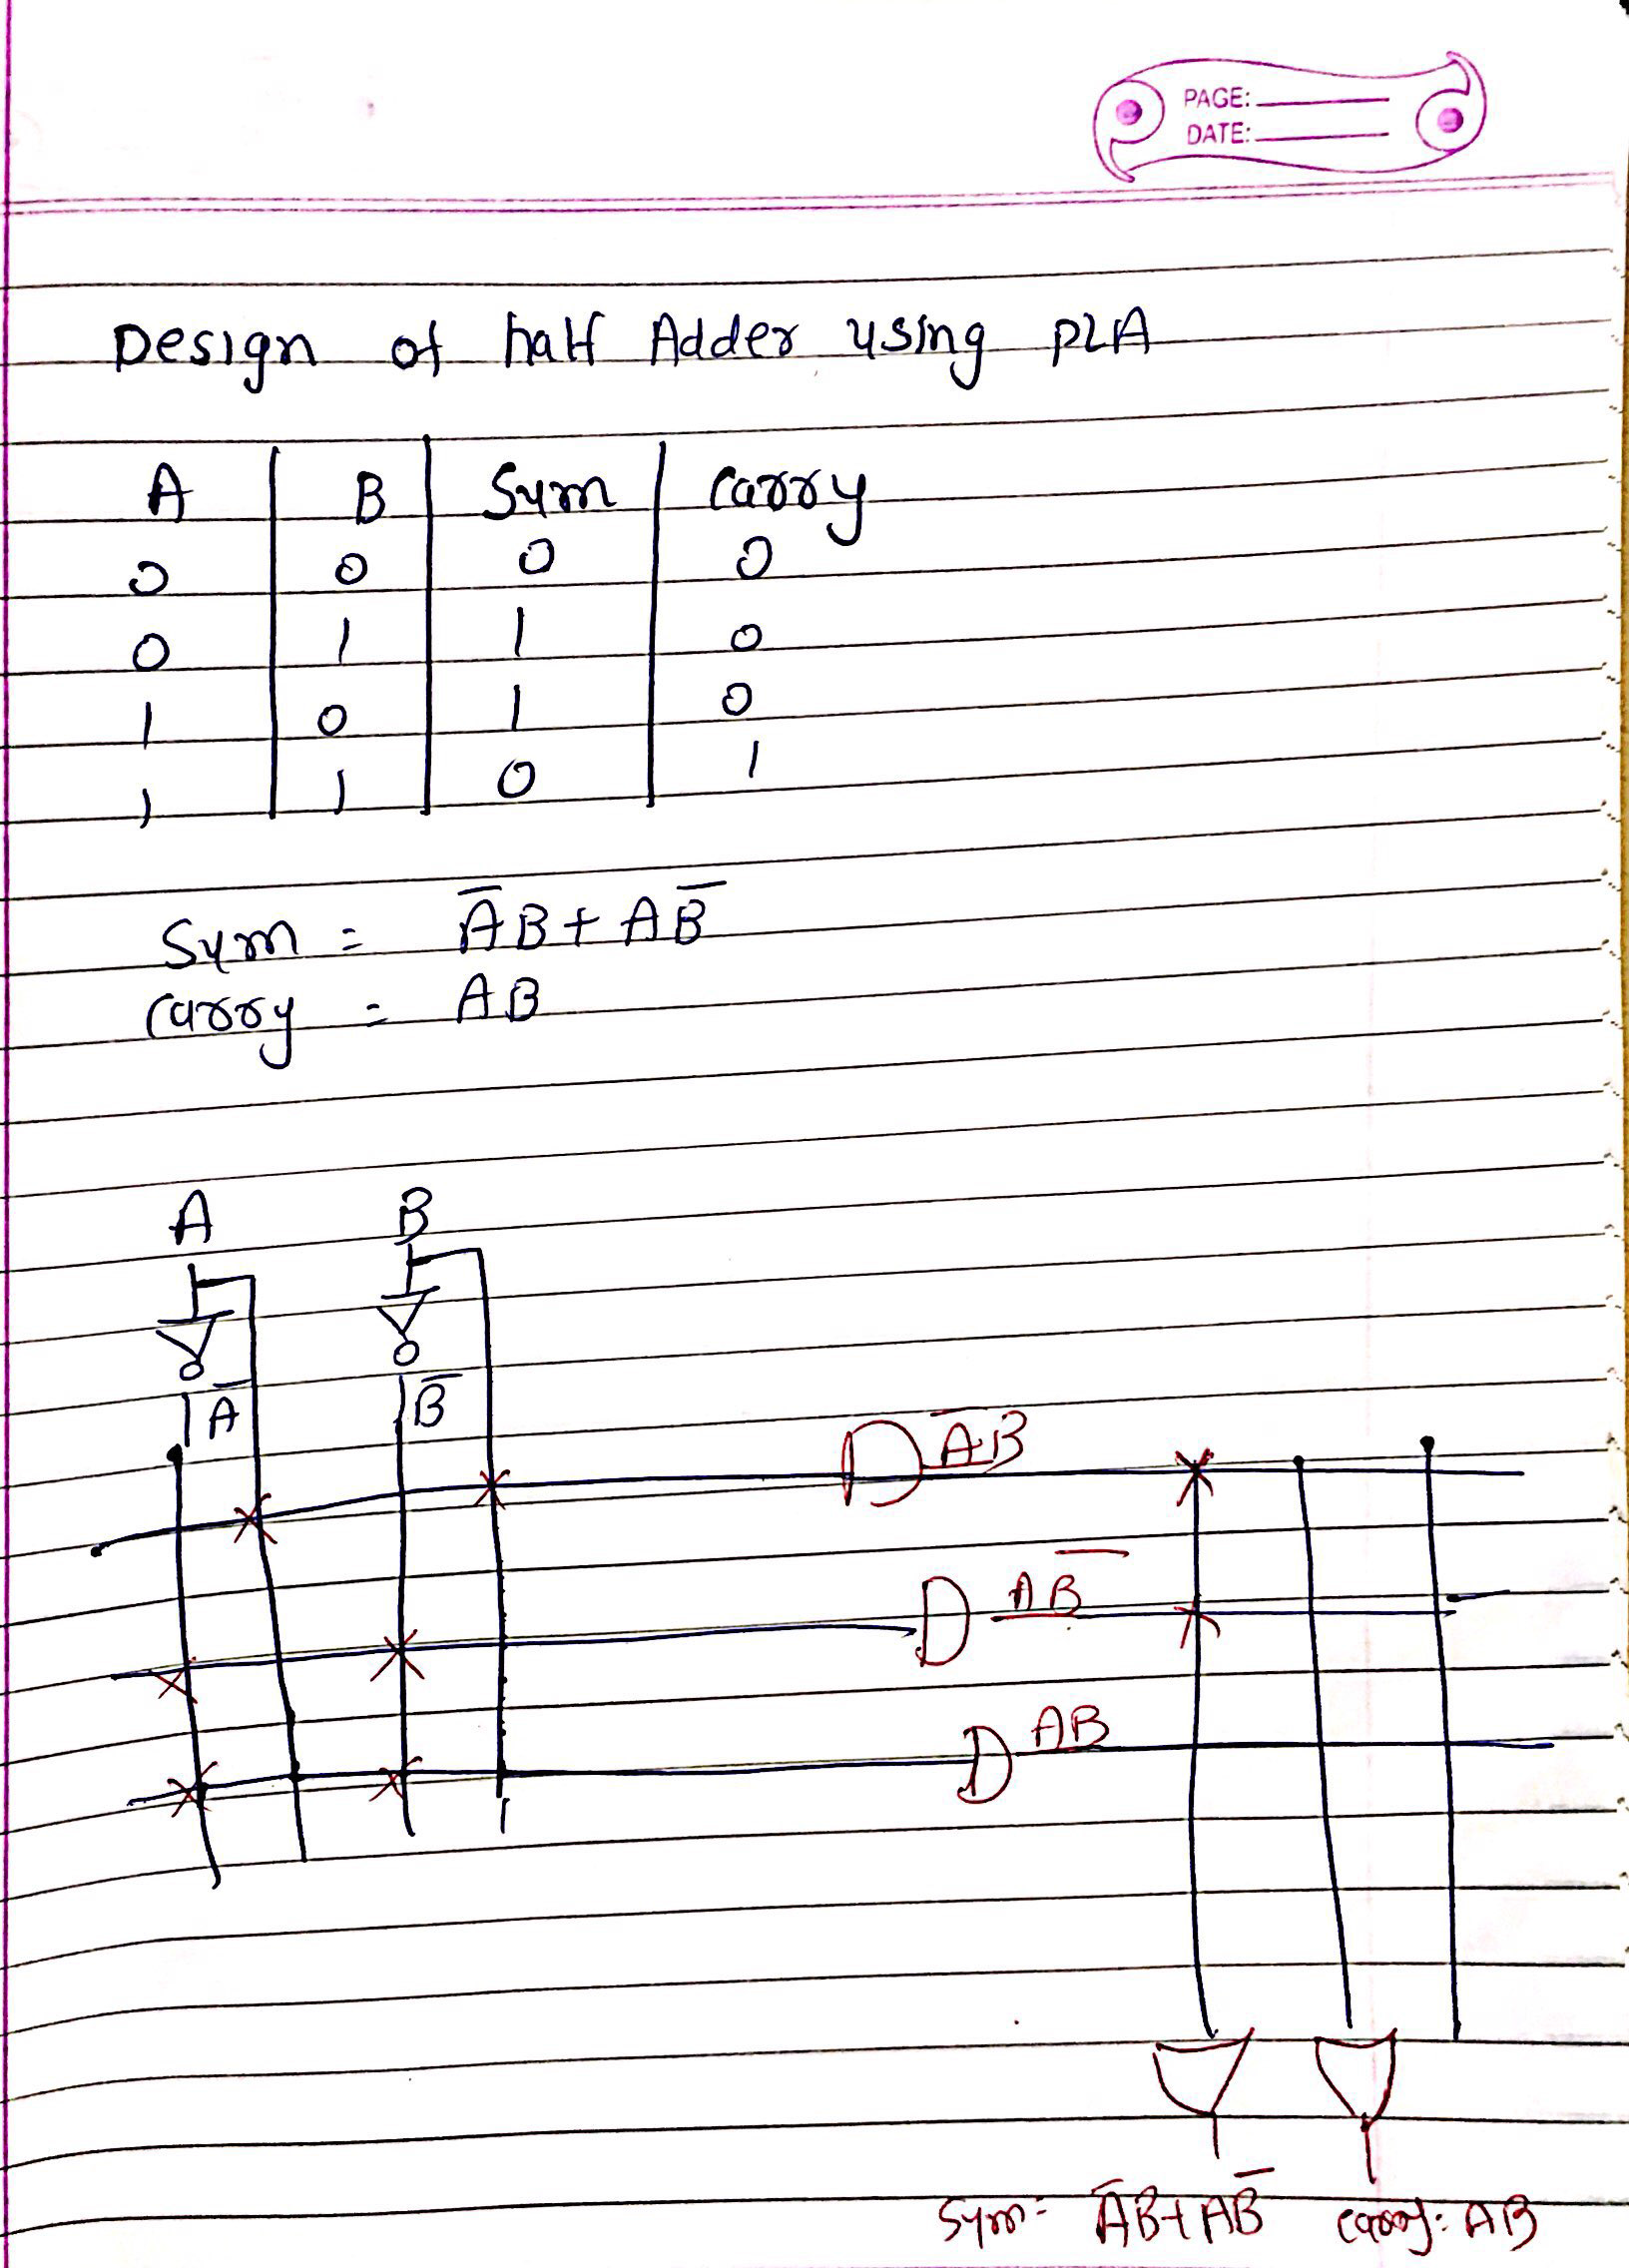 PAGE:
DATE:
Design of half Adder using PLA
A B Sum Carry
0 0 0 0
0 1 1 0
1 0 1 0
1 1 0 1
Sum = A̅B + AB̅
Carry = AB
A B
A̅ B̅
A̅B
AB̅
AB
Sum = A̅B+AB̅ Carry: AB